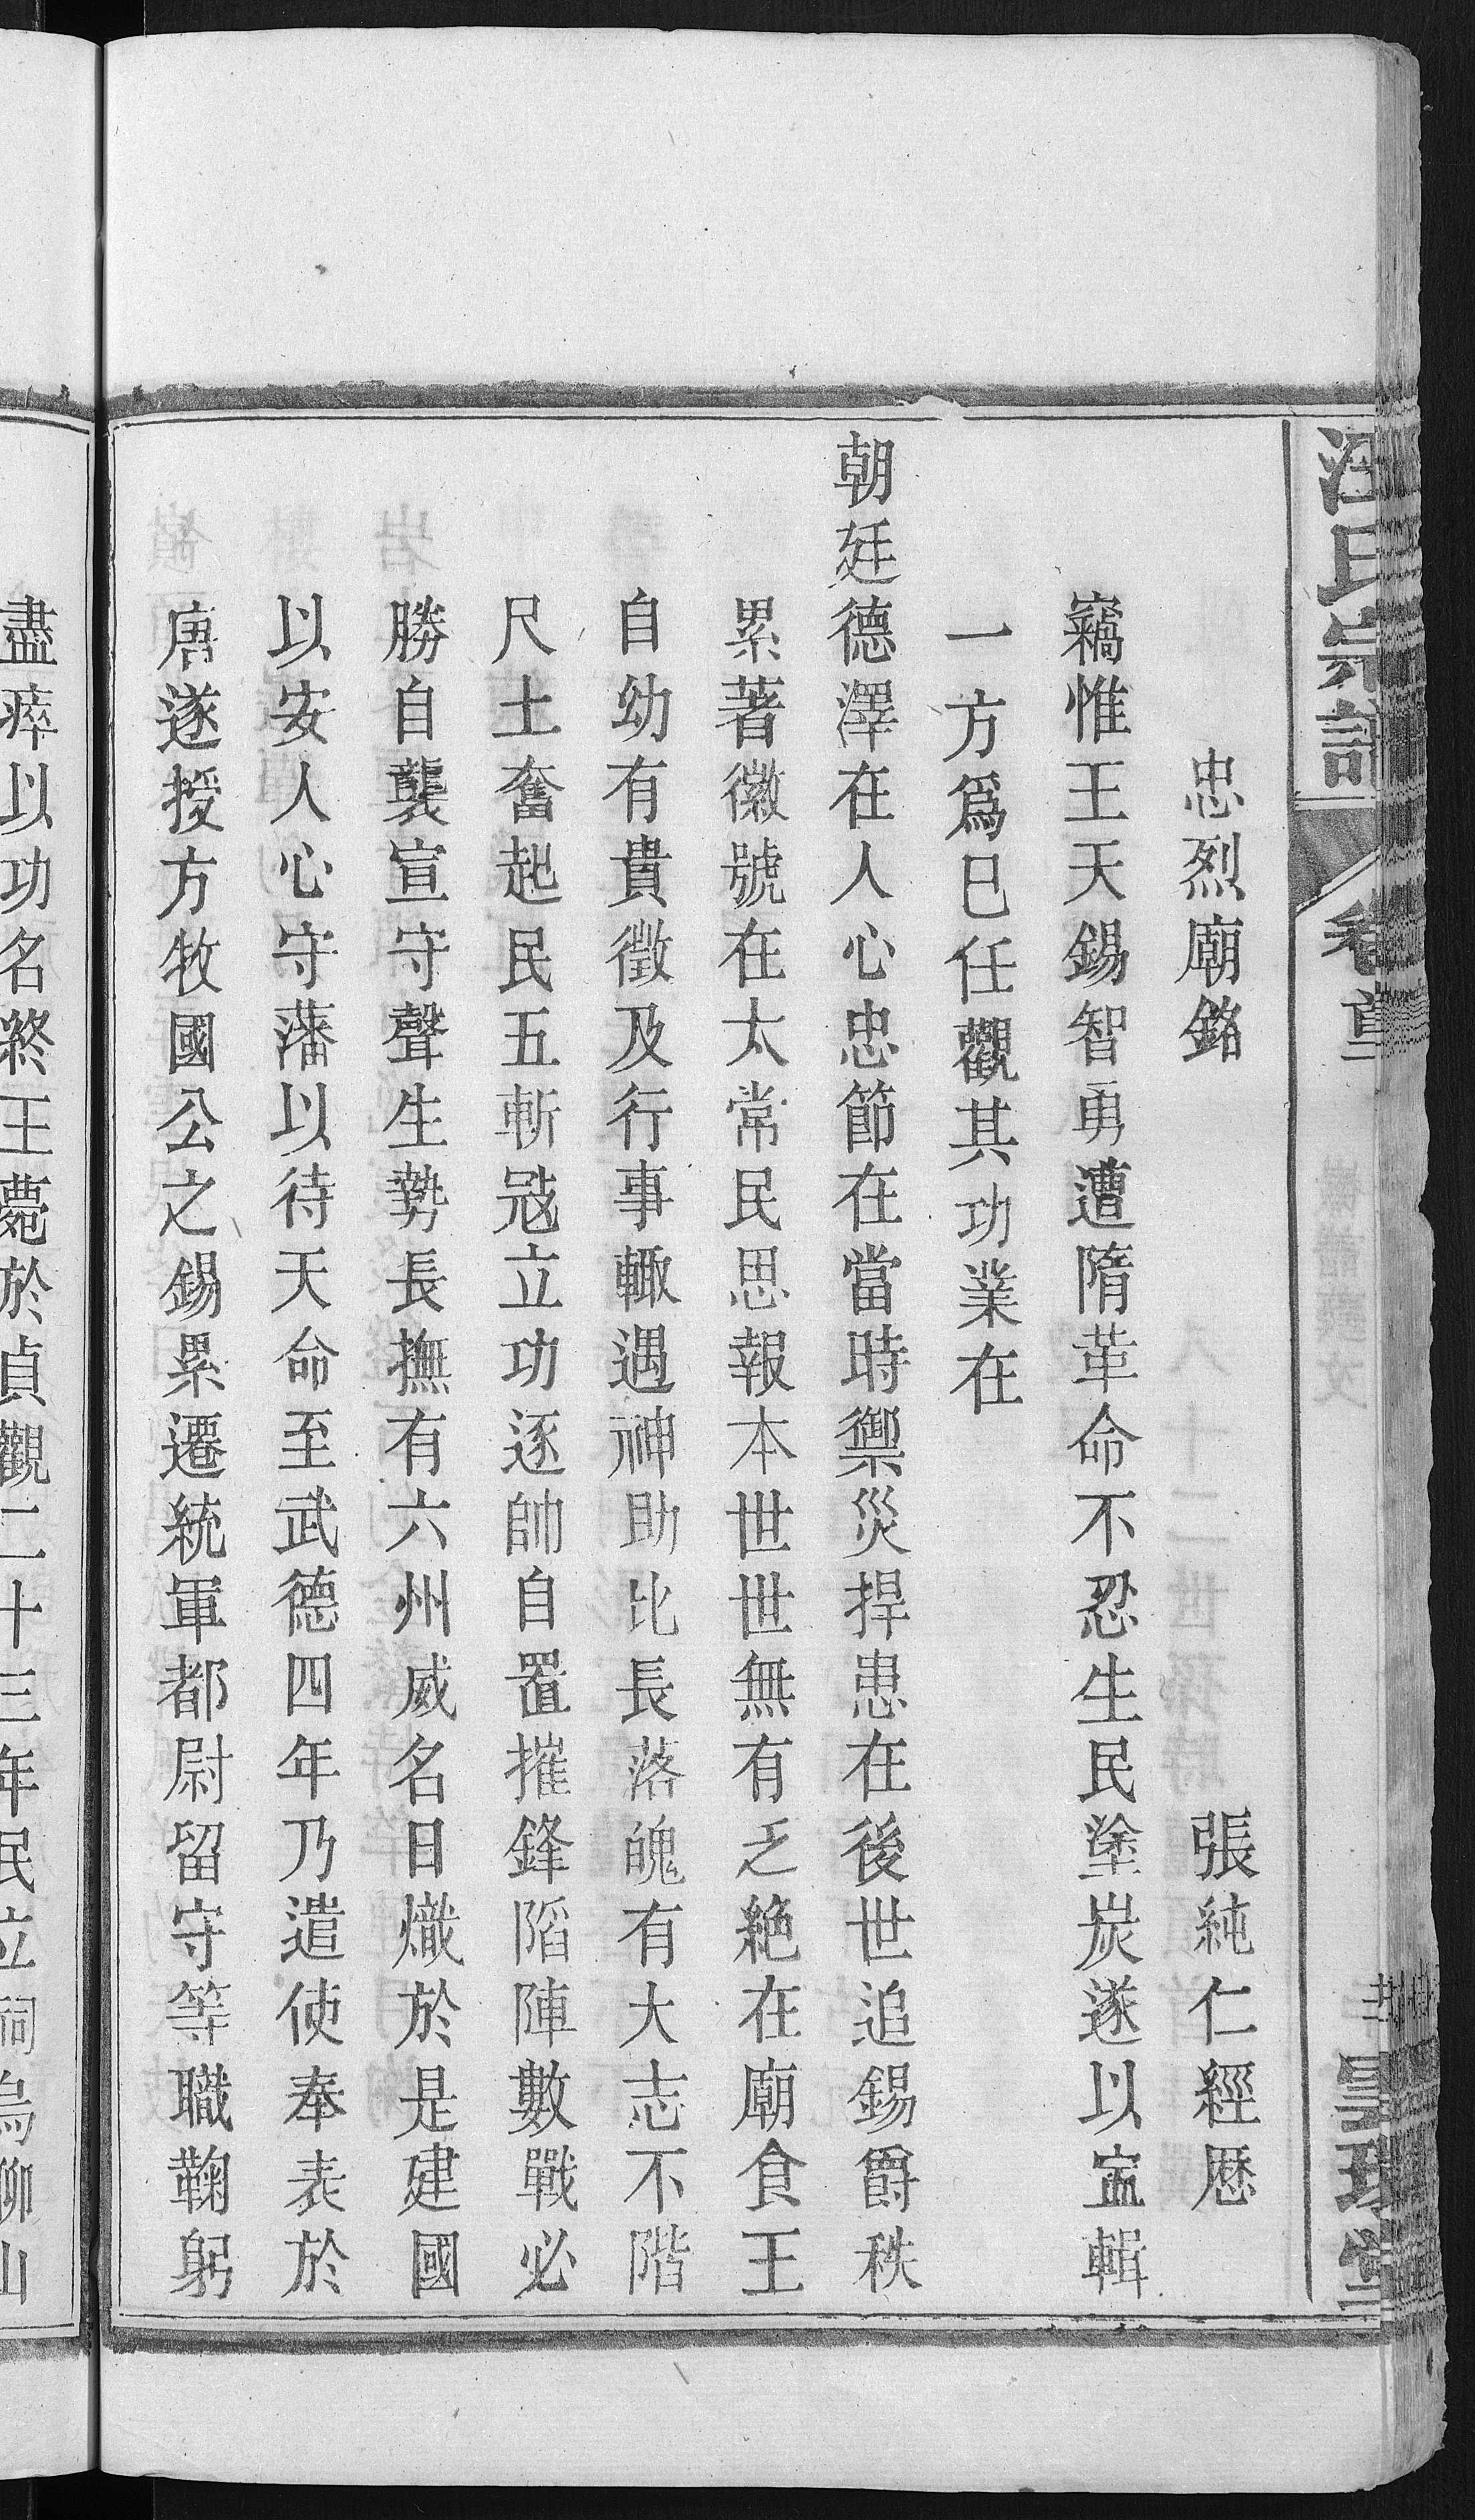 汪氏宗譜
卷首
忠烈廟銘 張純仁經歷
竊惟王天錫智勇遭隋革命不忍生民塗炭遂以寍輯
一方爲巳任觀其功業在
朝廷德澤在人心忠節在當時禦災捍患在後世追錫爵秩
累著徽號在太常民思報本世世無有乏絶在廟食王
自幼有貴徵及行事輒遇神助比長落魄有大志不階
尺土奮起民五斬冦立功逐帥自置摧鋒陷陣數戰必
勝自襲宣守聲生勢長撫有六州威名日熾於是建國
以安人心守藩以待天命至武德四年乃遣使奉表於
唐遂授方牧國公之錫累遷統軍都尉留守等職鞠躬
盡瘁以功名終王薨於貞觀二十三年民立祠烏聊山